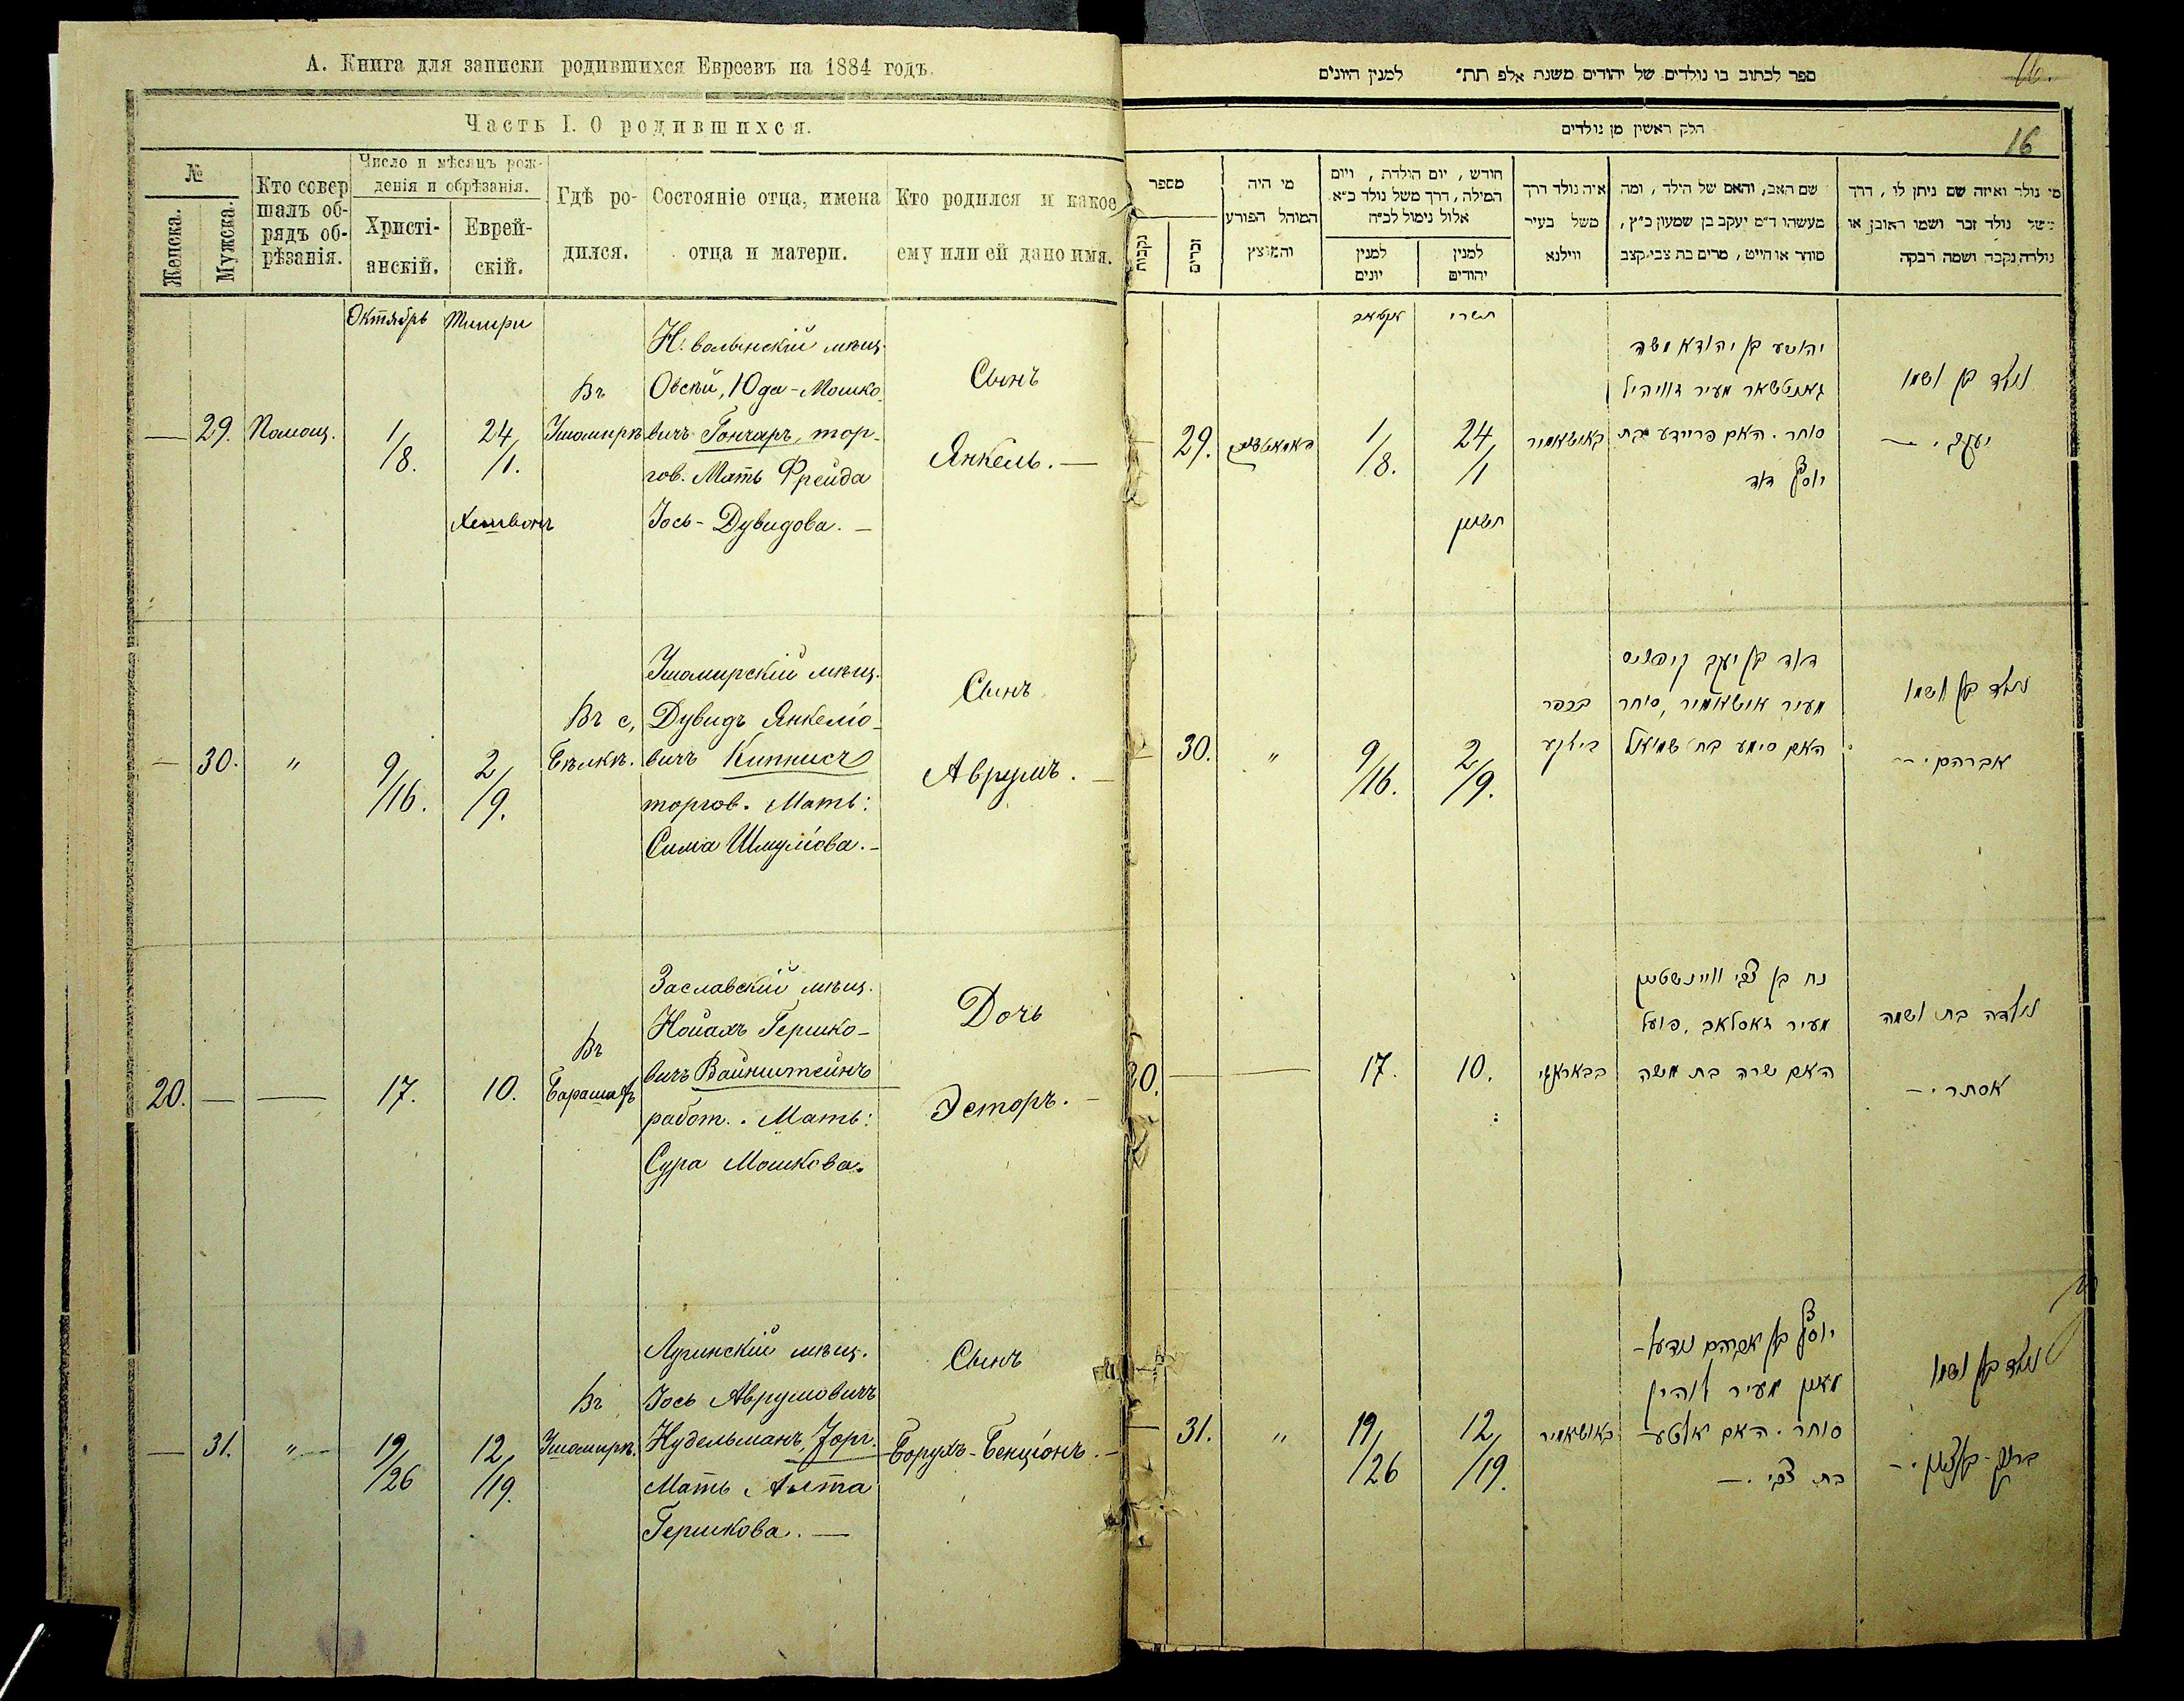 А. Книга для записки родившихся Евреевъ на 1884 годъ.
Часть I. О родившихся.
№
Женска.
Мужска.
Кто совер
шалъ об-
рядъ об-
рѣзанія.
Число и мѣсяцъ рож-
денія и обрѣзанія.
Христі-
анскій.
Еврей-
скій.
Гдѣ ро-
дился.
Состояніе отца, имена
отца и матери.
Кто родился и какое
ему или ей дано имя.
Октябрь Тишри
— 29.
1/8.
24/1.
Хешвонъ
Въ
Ушомирѣ
Н. волынскій мѣщ.
Овсѣй, Юда-Мошко-
вичъ Гончаръ, тор-
гов. Мать Фрейда
Іось-Дувидова. —
Сынъ
Янкель. —
— 30. "
9/16.
2/9.
Въ с.
Бѣлкѣ.
Ушомирскій мѣщ.
Дувидъ Янкеліо-
вичъ Кипнисъ
торгов. Мать:
Сима Шмуліова. —
Сынъ
Аврумъ. —
20. — —
17.
10.
Въ
Барашахъ
Заславскій мѣщ.
Нойахъ Гершко-
вичъ Вайнштейнъ
работ. . Мать:
Сура Мошкова.
Дочь
Эсторъ. —
— 31. "
19/26
12/19.
Въ
Ушомирѣ.
Лугинскій мѣщ.
Іось Аврумовичъ
Нудельманъ, Торг.
Мать Алта
Гершкова. . —
Сынъ
Борухъ-Бенціонъ. —
ספר לכתוב בו נולדים של יהודים משנת אלפ תת״ למנין היונים
16.
חלק ראשין מן נולדים
16
מי נולד ואיזה שם ניתן לו, דרך
משל נולד זכר ושמו ראובן או
נולדה נקבה ושמה רבקה
שם האב, והאם של הילד, ומה
מעשהו ד״מ יעקב בן שמעון כ״ץ,
סוחר או חייט, מרים בת צבי קצב
איה נולד דרך
משל בעיר
ווילנא
חודש, יום הולדת, ויום
המילה, דרך משל נולד כ״א
אלול נימול לכ״ח
למנין
יהודים
למנין
יונים
מי היה
המוהל הפורע
והמוצץ
מספר
זכרים
נקבות
תשרי
נולד בן ושמו
יעקב. —
יהושע בן יהודא משה
סוחר. האם פריידע בת
יוסף דוד
באושאמיר
24/1
חשון
1/8.
29.
נולד בן ושמו
אברהם. —
דוד בן יעקב קיפניס
מעיר אושאמיר, סוחר
האם סימע בת שמואל
בכפר
2/9.
9/16.
"
30.
נולדה בת ושמה
אסתר. —
נח בן צבי וויינשטיין
מעיר זאסלאב. פועל
האם שרה בת משה
בבאראשי
10.
17.
20.
נולד בן ושמו
ברוך-בן ציון. —
יוסף בן אברהם נודעל-
מאן מעיר לוהין
סוחר. האם אלטע
בת צבי. —
באושאמיר
12/19.
19/26
"
31.